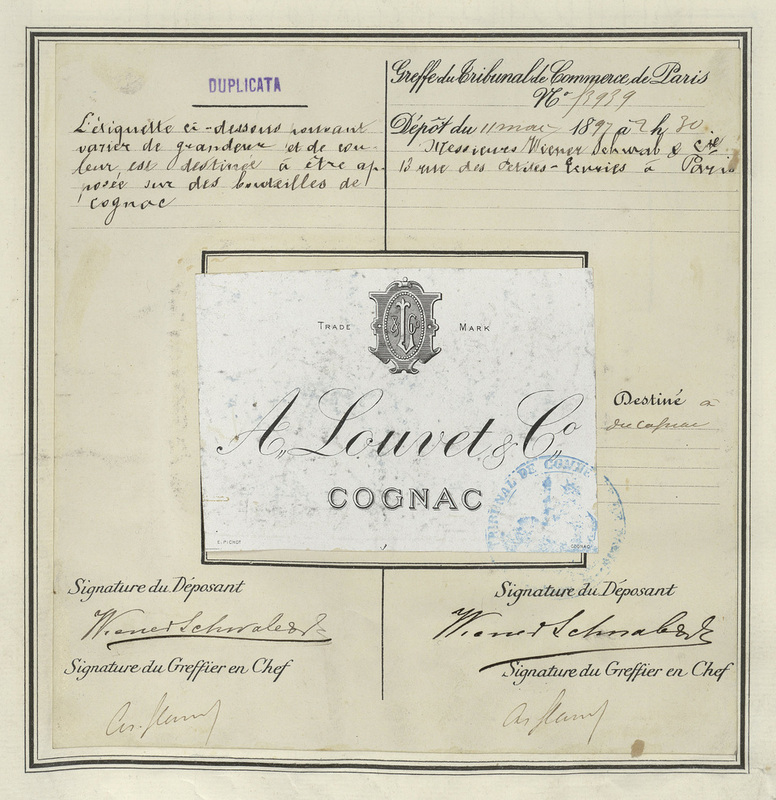 DUPLICATA
L'étiquette ci-dessous pouvant
varier de grandeur et de cou-
leur est destinée à être ap-
posée sur des bouteilles de
cognac
Greffe du Tribunal de Commerce de Paris
No
Dépôt du 11 mai 1897 à 2 h 30
Messieurs Wiener Schwab & Cie
13 rue des Petites-Ecuries à Paris
TRADE MARK
A. Louvet & Co
COGNAC
E. PICHOT
COGNAC
TRIBUNAL DE COMME
Destiné à
du cognac
Signature du Déposant
Wiener Schwab & Cie
Signature du Greffier en Chef
Signature du Déposant
Wiener Schwab & Cie
Signature du Greffier en Chef